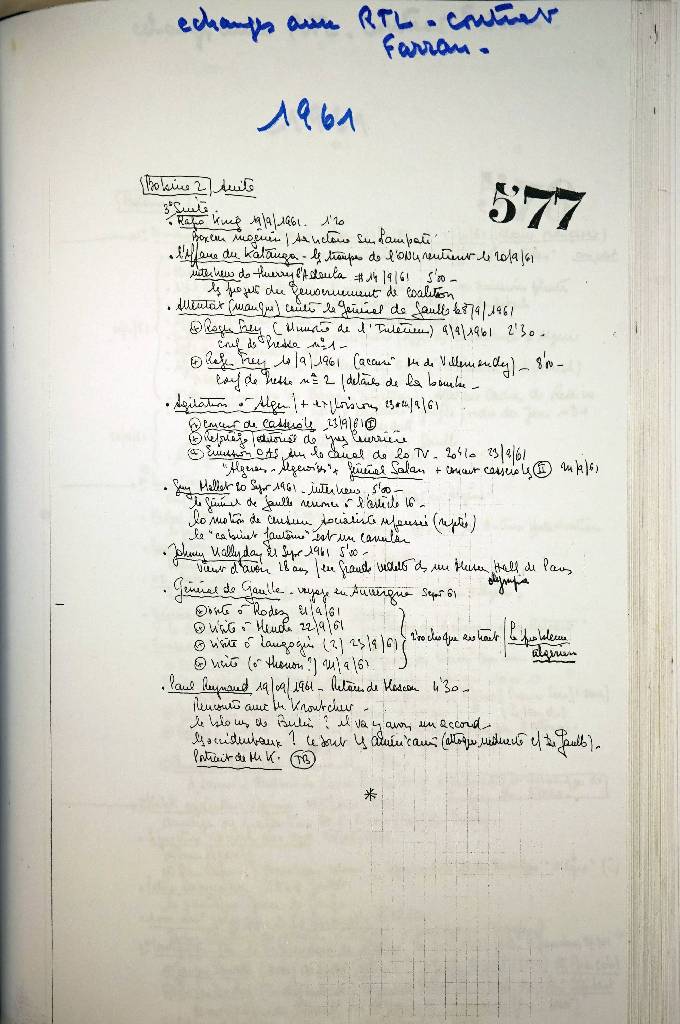 echanges avec RTL - contrat
Farran -
1961
577
Bobine 2 / suite
3° Suite
• King 19/9/1961 - 1'20
Boxeur nigérien / sur Lampati
• l'Affaire du Katanga - les troupes de l'ONU rentrent le 20/9/61
interview de Thierry 14/9/61 5'00 -
les projets du Gouvernement de Coalition
• Attentat (manqué) contre le Général de Gaulle le 8/9/1961
* Roger Frey (Ministre de l'Intérieur) 9/9/1961 2'30 -
conf de Presse n° 1 -
* Roger Frey 10/9/1961 (accusé de Villemandy) - 8'00 -
conf de Presse n° 2 / détails de la bombe -
• Agitation à Alger / + explosions 23 24/9/61
* concert de casseroles 23/9/61 I
* Reportage de Yves
* Emission OAS sur le canal de la TV - 20h10 23/9/61
"Algériens - Algéroises" + Général Salan + concert casseroles II 24/9/61
• Guy Mollet 20 Sept 1961 - interview 5'00 -
le Général de Gaulle renonce à l'article 16 -
la motion de censure socialiste repoussée (rejetée)
le "cabinet fantôme" est un canular
• Johnny Hallyday 21 Sept 1961 5'00 -
vient d'avoir 18 ans / en Grande vedette ds un Music Hall de Paris
olympia
• Général de Gaulle - voyage en Auvergne Sept 61
* visite à Rodez 21/9/61
* visite à Mende 22/9/61
* visite à Langogne (2) 23/9/61
* visite (à Thonon ?) 24/9/61
2'00 chaque extrait / le problème
algérien
• Paul Reynaud 19/09/1961 - Retour de Moscou 4'30 -
Rencontre avec M. Kroutchev -
le blocus de Berlin ? il va y avoir un accord -
les occidentaux ? ce sont les américains (attaque indirecte c/ De Gaulle) -
Portrait de M K. TB
*